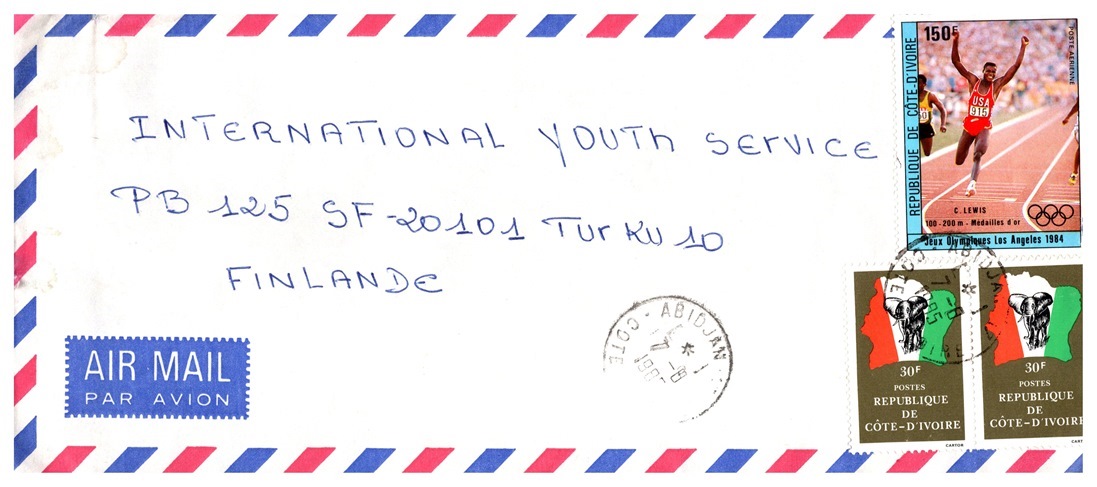 INTERNATIONAL YOUTH SERVICE
PB 125 SF-20101 TURKU 10
FINLANDE
AIR MAIL
PAR AVION
ABIDJAN
COTE
7-8
150F
POSTE AERIENNE
REPUBLIQUE DE CÔTE-D'IVOIRE
USA
915
C. LEWIS
100-200 m - Médailles d'or
Jeux Olympiques Los Angeles 1984
ABIDJAN
COTE
7-8
1985
30F
POSTES
REPUBLIQUE
DE
CÔTE-D'IVOIRE
CARTOR
30F
POSTES
REPUBLIQUE
DE
CÔTE-D'IVOIR
CART